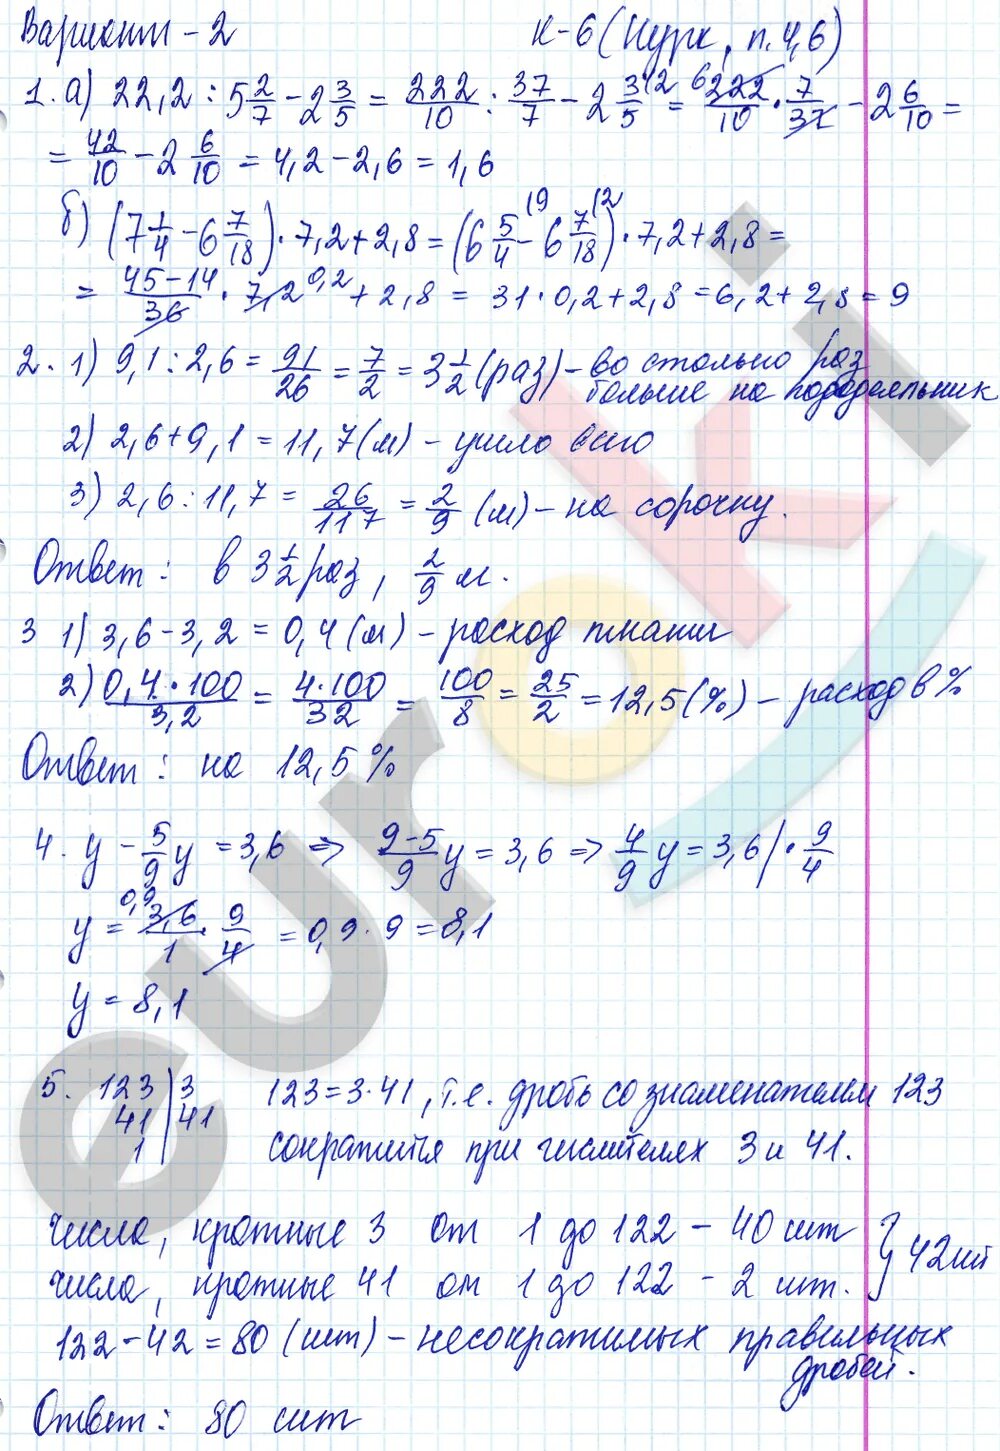 Вариант - 2 К-6 (Нурк, п. 4,6)
1. а) 22,2 : 5 2/7 - 2 3/5 = 222/10 : 37/7 - 2 3/5 (2 = 6 222/10 · 7/37 - 2 6/10 =
= 42/10 - 2 6/10 = 4,2 - 2,6 = 1,6
б) (7 1/4 - 6 7/18) · 7,2 + 2,8 = (6 5/4 (9 - 6 7/18 (2) · 7,2 + 2,8 =
= 45-14/36 · 7,2 0,2 + 2,8 = 31 · 0,2 + 2,8 = 6,2 + 2,8 = 9
2. 1) 9,1 : 2,6 = 91/26 = 7/2 = 3 1/2 (раз) - во столько раз
больше на пододеяльник
2) 2,6 + 9,1 = 11,7 (м) - ушло всего
3) 2,6 : 11,7 = 26/117 = 2/9 (м) - на сорочку.
Ответ: в 3 1/2 раз, 2/9 м.
3 1) 3,6 - 3,2 = 0,4 (м) - расход ткани
2) 0,4 · 100/3,2 = 4·100/32 = 100/8 = 25/2 = 12,5 (%) - расход в %
Ответ: на 12,5 %
4. y - 5/9 y = 3,6 => 9-5/9 y = 3,6 => 4/9 y = 3,6 | · 9/4
y = 0,9 3,6/1 · 9/4 = 0,9 · 9 = 8,1
y = 8,1
5. 123 | 3 123 = 3·41, т.е. дробь со знаменателем 123
41 | 41
1 | сократится при числителях 3 и 41.
числа, кратные 3 от 1 до 122 - 40 шт } 42 шт
числа, кратные 41 от 1 до 122 - 2 шт.
122 - 42 = 80 (шт) - несократимых правильных
дробей.
Ответ: 80 шт
euroki